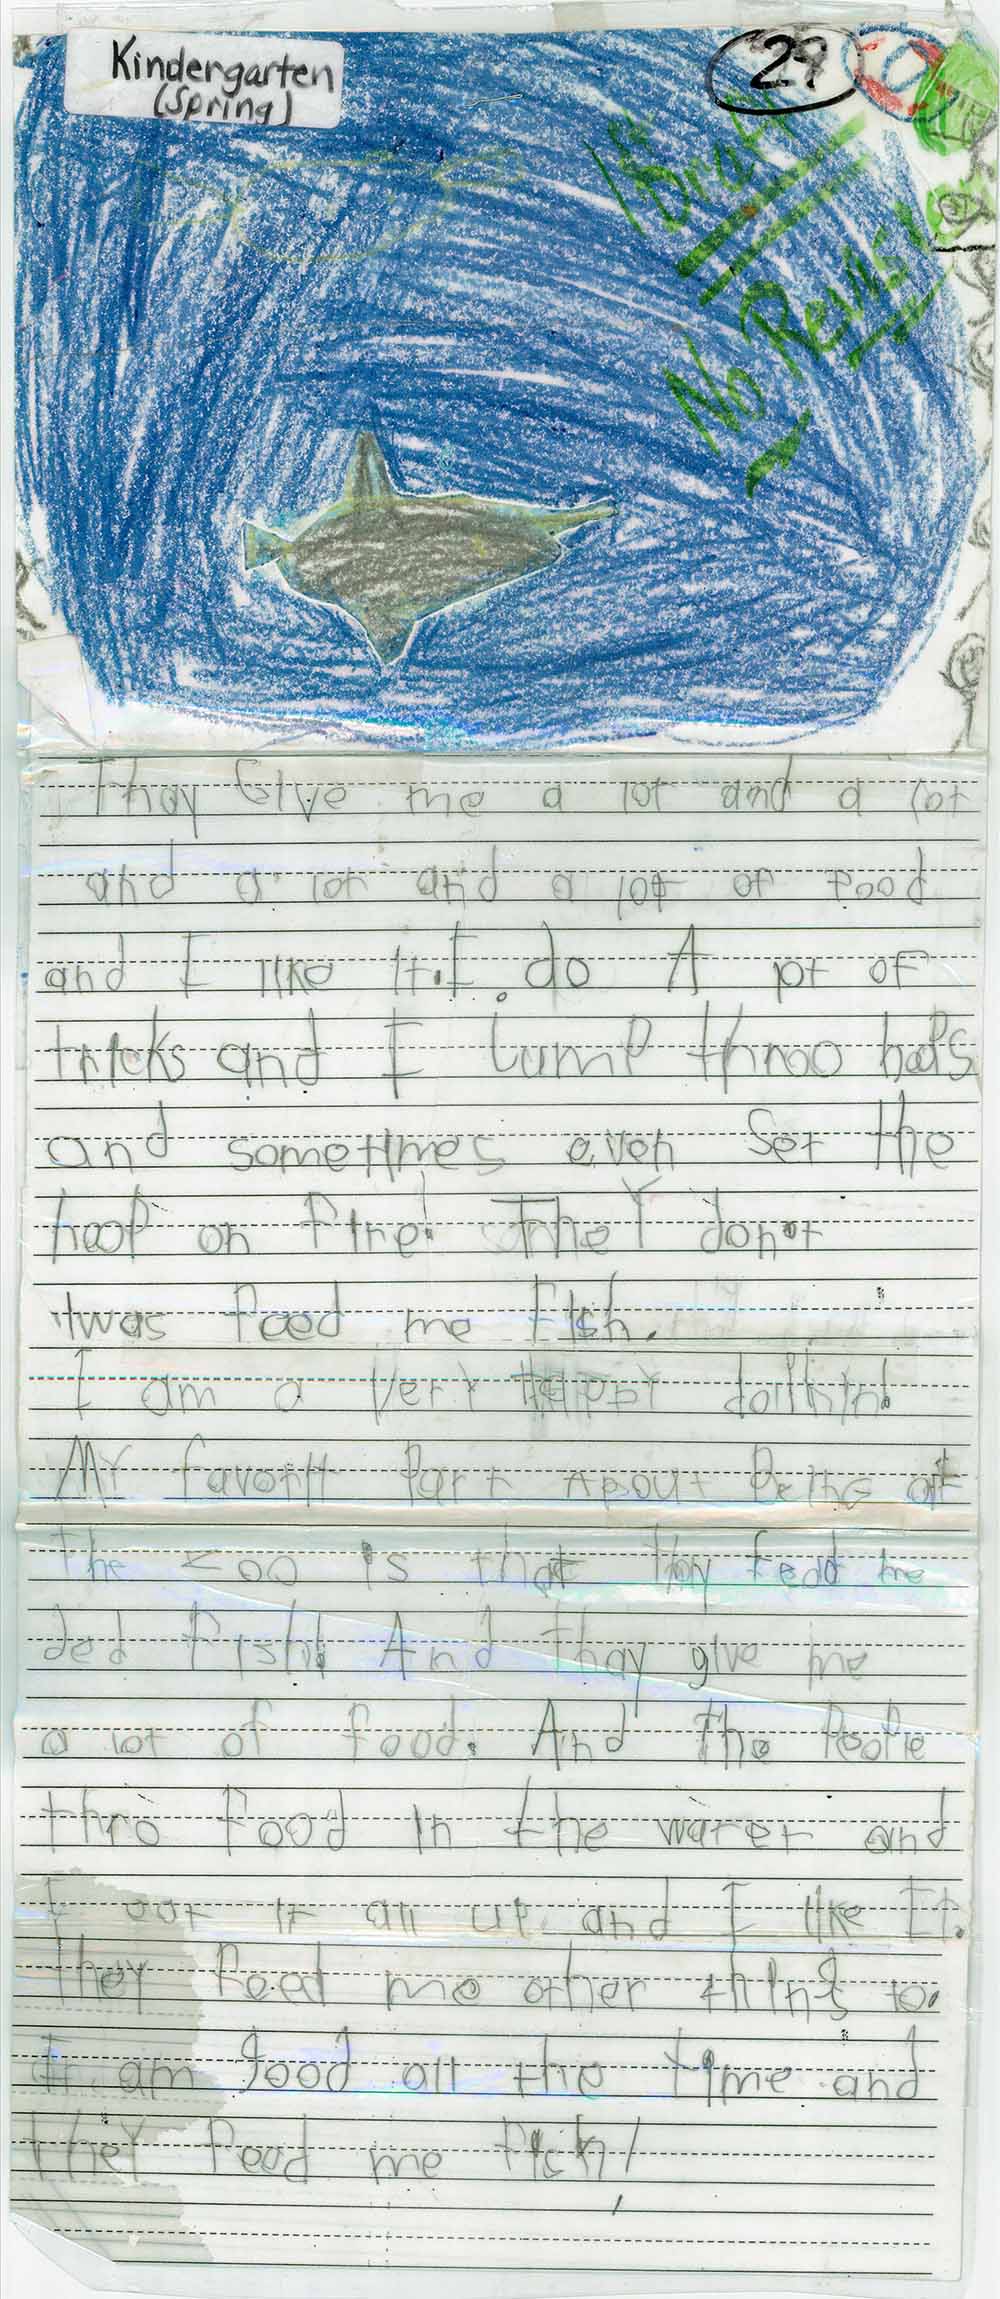 Kindergarten
(Spring)
29
No Revis
Thay Give me a lot and a lot
and a lot and a lot of food
and I like it. I do A lot of
tricks and I Jump throo hoops
and sometimes even set the
hoop on fire! They don't
feed me fish.
I am a very happy dollfhin!
My favorit Part About Being at
the zoo is that thay feed me
ded fish! And thay give me
a lot of food. And The People
thro food in the water and
I eat it all up and I like It.
They feed me other things to.
I am good all the time and
they feed me fish!